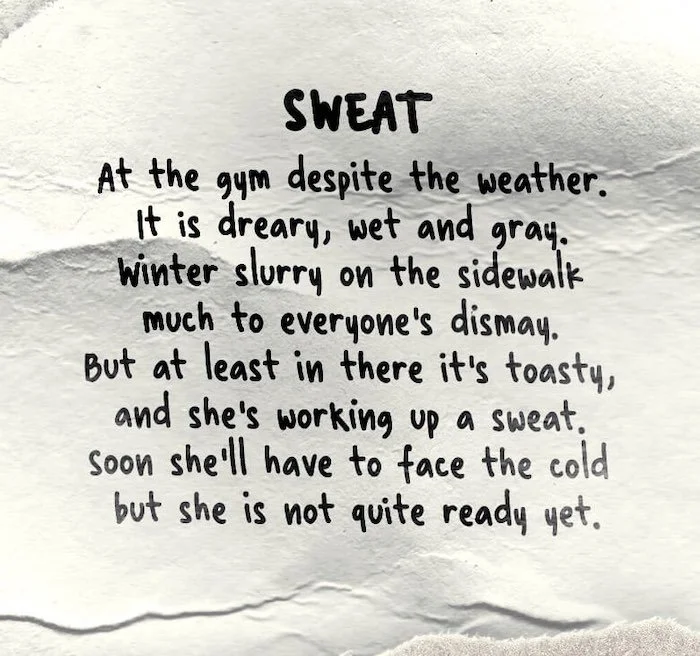 SWEAT
At the gym despite the weather.
It is dreary, wet and gray.
Winter slurry on the sidewalk
much to everyone's dismay.
But at least in there it's toasty,
and she's working up a sweat.
Soon she'll have to face the cold
but she is not quite ready yet.